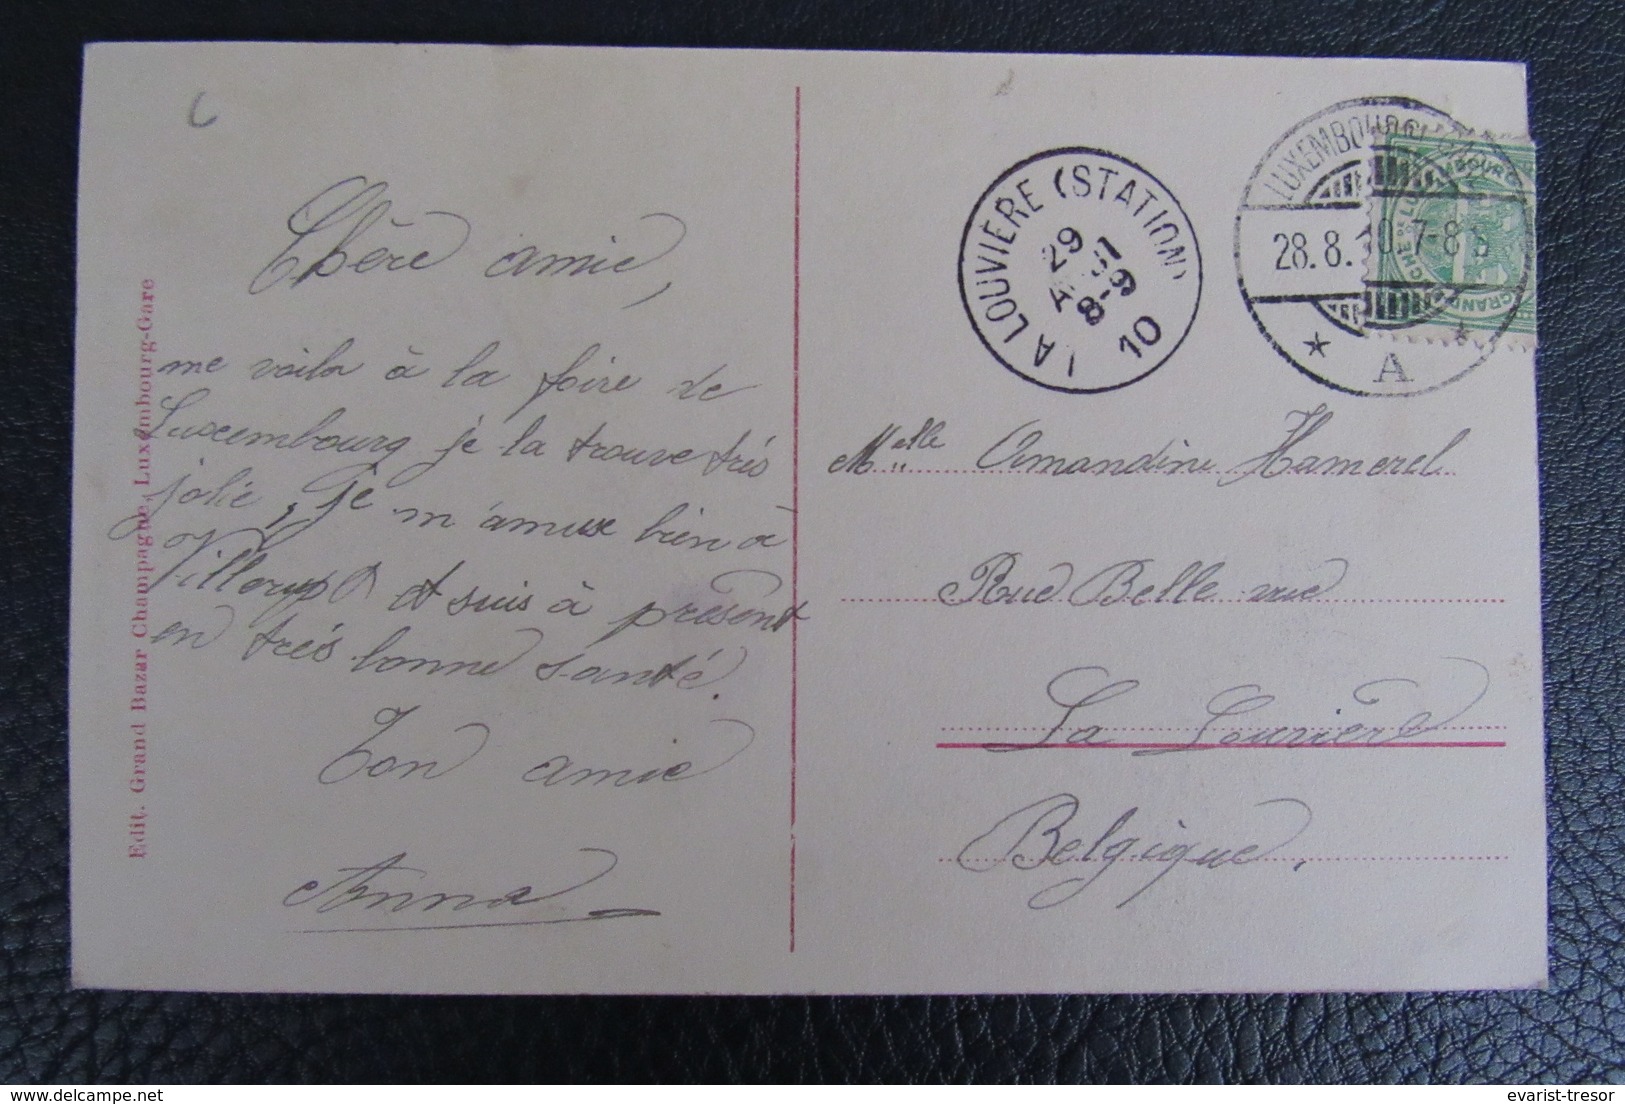 Chère amie,
me voila à la foire de
Luxembourg je la trouve très
jolie, je m'amuse bien à
Villerupt et suis à présent
en très bonne santé.
Ton amie
Anna
Edit. Grand Bazar Champagne, Luxembourg-Gare
LA LOUVIÈRE (STATION)
29
8-9
10
LUXEMBOURG
28.8.10.7-8
* A *
Melle Amandine Hamerel
Rue Belle vue
La Louvière
Belgique.
evarist-tresor